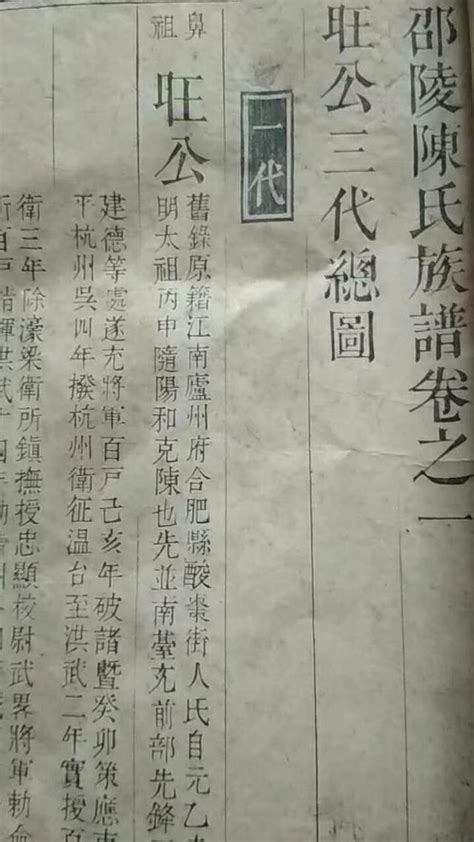 邵陵陳氏族譜卷之一
旺公三代總圖
一代
鼻祖
旺公
舊錄原籍江南廬州府合肥縣酸棗街人氏自元乙未
明太祖丙申隨陽和克陳也先並南臺充前部先鋒
建德等處遂充將軍百戶己亥年破諸暨癸卯策應
平杭州吳四年撥杭州衛征溫台至洪武二年實授百
衛三年除濠梁衛所鎮撫授忠顯校尉武畧將軍勅
所百戶
洪武十四年